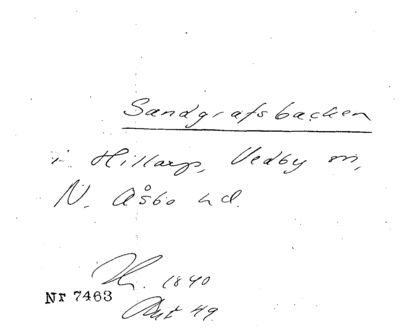 Sandgrafsbacken
i Hillarp, Vedby sn,
N. Åsbo hd.
1840
Nr 7463
Akt 49.